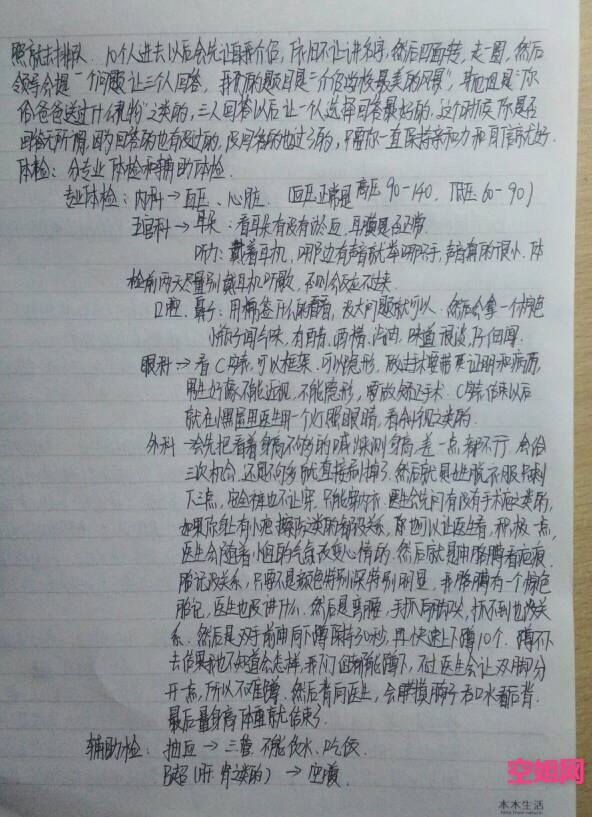 照就去排队. 10个人进去以后会先让自我介绍, 广州不让讲名字, 然后四面转, 走一圈, 然后
领导会提一个问题让三个人回答, 我们的题目是“介绍学校最美的风景”, 其他组是“你
给爸爸送过什么礼物”之类的, 三人回答以后让一人选择回答最好的. 这个时候你是否
回答无所谓, 因为回答的也有没过的, 没回答的也过了的, 只需你一直保持亲和力和自信就好.
体检: 分专业体检和辅助体检.
专业体检: 内科→血压、心脏. (血压正常是高压90-140, 低压60-90)
五官科→耳朵: 看耳朵有没有淤血, 耳膜是否正常.
听力: 戴着耳机, 哪边有声音就举哪只手, 声音真的很小, 体
检前两天尽量别戴耳机听歌, 否则会反应不过来.
口腔、鼻子: 用棉签什么的看看, 没大问题就可以. 然后会拿一个棕色
小瓶子闻气味, 有酒, 醋, 汽油, 味道很淡, 仔细闻.
眼科→看C字表, 可以框架, 可以隐形, 做过手术要带其证明和病历,
男生好像不能近视, 不能隐形, 要做矫正手术. C字表结束以后
就在小黑屋里医生用一个灯照眼睛, 看会之类的.
外科→会先把看着身高不够的喊来测身高, 差一点都不行. 会给
三次机会, 还是不够就直接刷掉了. 然后就是脱衣服只剩
下三点, 安全裤也不让穿, 只能穿内衣. 医生会先问有没有手术疤之类的,
如果你身上有小疤擦伤之类的都没关系, 你也可以让医生看, 积极一点,
医生会随着小组的气氛改变心情的. 然后就是伸胳膊看疤痕,
胎记没关系, 只要不是颜色特别深特别明显, 我胳膊有一个棕色
胎记, 医生也没讲什么. 然后是弯腰, 手抓脚尖, 抓不到也没关
系. 然后是双手前伸向下蹲保持30秒, 再快速上下蹲10个. 蹲不下
去结果我也不知道会怎样, 我们组都能蹲下, 不过医生会让双脚分
开一点, 所以不难蹲. 然后背向医生, 会摸摸脖子 看后背.
最后量身高体重就结束了.
辅助检: 抽血→三管 不能饮水、吃饭.
B超(肝、肾之类的)→空腹.
本木生活
空姐网